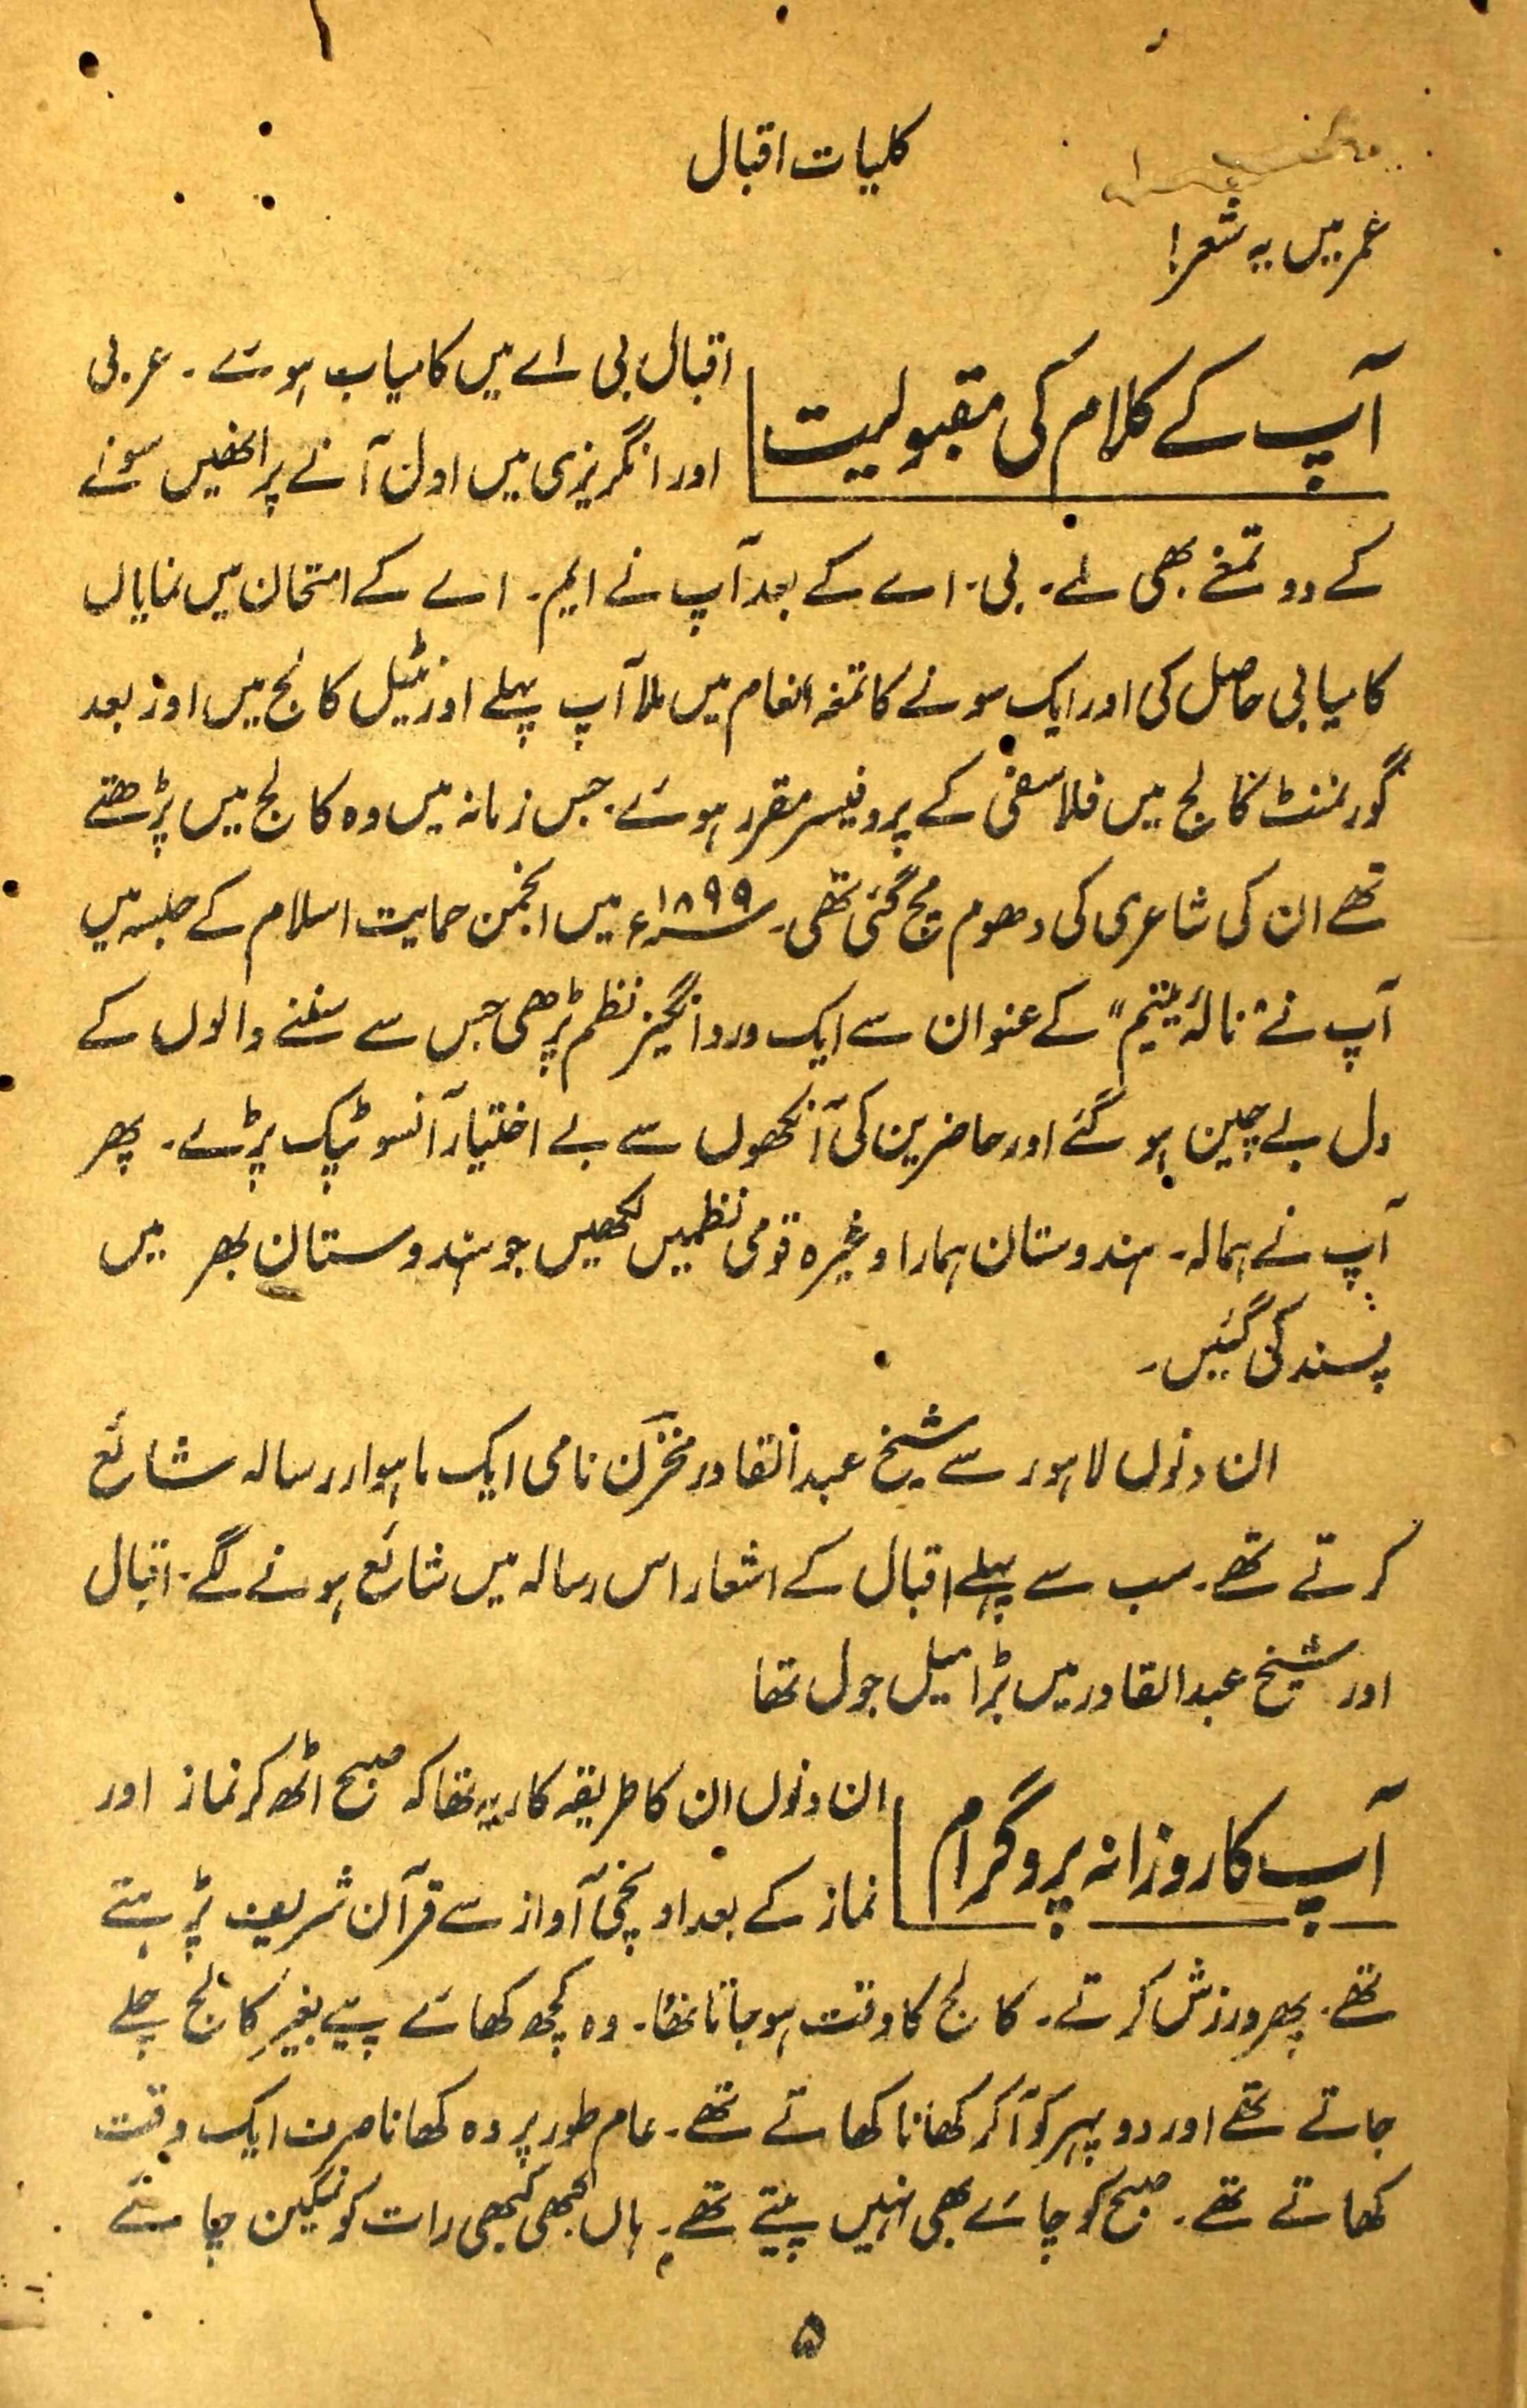 کلیات اقبال
عمر میں یہ شعر!
آپ کے کلام کی مقبولیت
اقبال بی اے میں کامیاب ہوئے۔ عربی
اور انگریزی میں اول آنے پر انھیں سونے
کے دو تمغے بھی ملے۔ بی۔ اے کے بعد آپ نے ایم۔ اے کے امتحان میں نمایاں
کامیابی حاصل کی اور ایک سونے کا تمغہ انعام میں ملا آپ پہلے اورنٹیل کالج میں اور بعد
گورنمنٹ کالج میں فلاسفی کے پروفیسر مقرر ہوئے۔ جس زمانہ میں وہ کالج میں پڑھتے
تھے ان کی شاعری کی دھوم مچ گئی تھی۔ ۱۸۹۹ء میں انجمن حمایت اسلام کے جلسہ میں
آپ نے "نالۂ یتیم" کے عنوان سے ایک درد انگیز نظم پڑھی جس سے سننے والوں کے
دل بے چین ہو گئے اور حاضرین کی آنکھوں سے بے اختیار آنسو ٹپک پڑے۔ پھر
آپ نے ہمالہ۔ ہندوستان ہمارا وغیرہ قومی نظمیں لکھیں جو ہندوستان بھر میں
پسند کی گئیں۔
ان دنوں لاہور سے شیخ عبدالقادر مخزن نامی ایک ماہوار رسالہ شائع
کرتے تھے۔ سب سے پہلے اقبال کے اشعار اس رسالہ میں شائع ہونے لگے۔ اقبال
اور شیخ عبدالقادر میں بڑا میل جول تھا
آپ کا روزانہ پروگرام
ان دنوں ان کا طریقہ کار یہ تھا کہ صبح اٹھ کر نماز اور
نماز کے بعد اونچی آواز سے قرآن شریف پڑہتے
تھے۔ پھر ورزش کرتے۔ کالج کا وقت ہو جاتا تھا۔ وہ کچھ کھائے پیے بغیر کالج چلے
جاتے تھے اور دوپہر کو آ کر کھانا کھاتے تھے۔ عام طور پر وہ کھانا صرف ایک وقت
کھاتے تھے۔ صبح کو چائے بھی نہیں پیتے تھے۔ ہاں کبھی کبھی رات کو نمکین چائے
۵